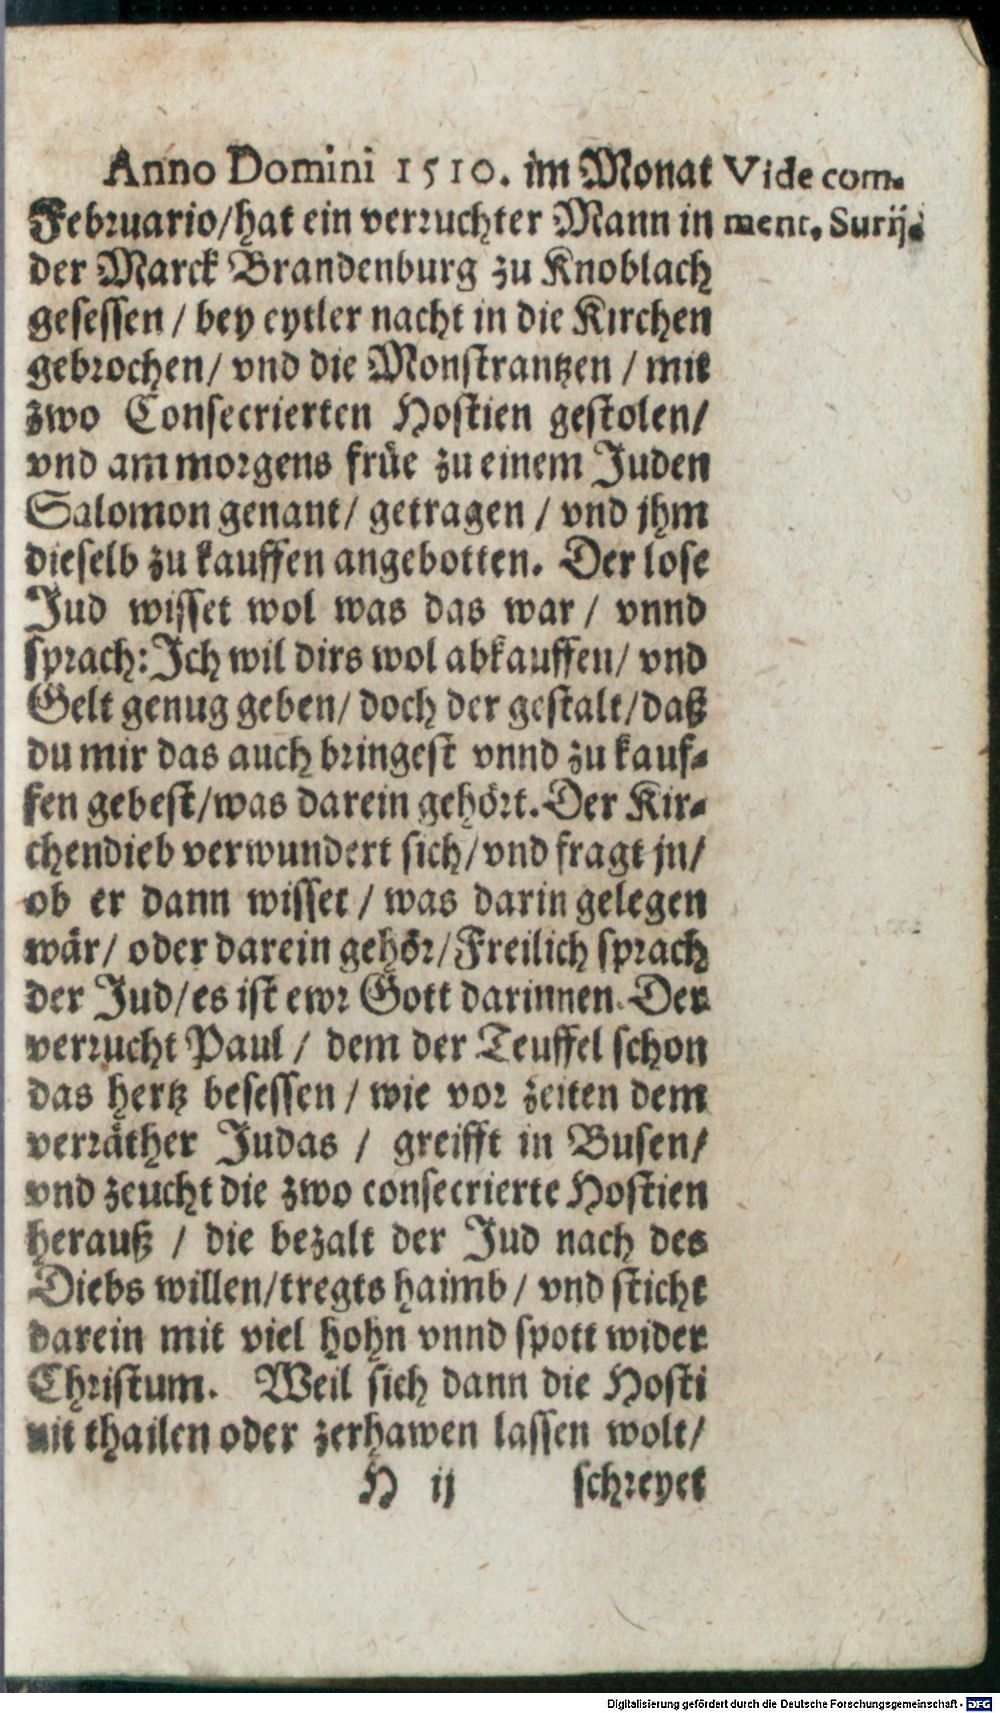 Anno Domini 1510. im Monat
Vide com-
Februario/hat ein verruchter Mann in
ment. Surij.
der Marck Brandenburg zu Knoblach
gesessen / bey eytler nacht in die Kirchen
gebrochen/ vnd die Monstrantzen / mit
zwo Consecrierten Hostien gestolen/
vnd am morgens früe zu einem Juden
Salomon genant/ getragen / vnd jhm
dieselb zu kauffen angebotten. Der lose
Jud wisset wol was das war / vnnd
sprach: Ich wil dirs wol abkauffen/ vnd
Gelt genug geben/ doch der gestalt/daß
du mir das auch bringest vnnd zu kauf-
fen gebest/was darein gehört. Der Kir-
chendieb verwundert sich/ vnd fragt jn/
ob er dann wisset / was darin gelegen
wär/ oder darein gehör/Freilich sprach
der Jud/es ist ewr Gott darinnen. Der
verrucht Paul / dem der Teuffel schon
das hertz besessen / wie vor zeiten dem
verräther Judas / greifft in Busen/
vnd zeucht die zwo consecrierte Hostien
herauß / die bezalt der Jud nach des
Diebs willen/tregts haimb / vnd sticht
darein mit viel hohn vnnd spott wider
Christum. Weil sich dann die Hosti
nit thailen oder zerhawen lassen wolt/
H ij
schreyet
Digitalisierung gefördert durch die Deutsche Forschungsgemeinschaft - DFG